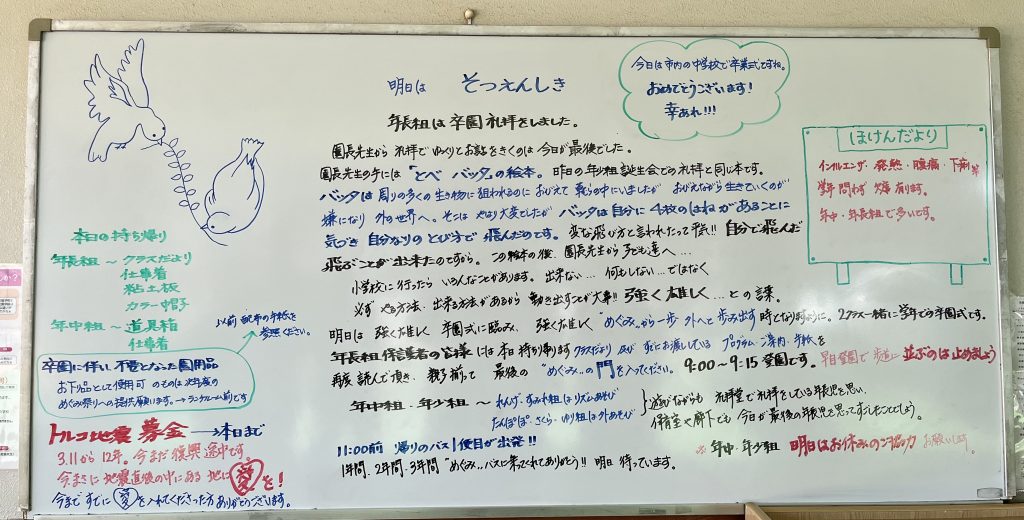 明日は そつえんしき
今日は市内の中学校で卒業式ですね。
おめでとうございます！
幸あれ!!!
年長組は卒園礼拝をしました。
園長先生から 礼拝でゆっくりとお話をきくのは 今日が最後でした。
園長先生の手には "とべ バッタ"の絵本。昨日の年少組誕生会での礼拝と同じ本です。
バッタは 周りの多くの生き物に狙われるのに おびえて 茂みの中にいましたが おびえながら生きていくのが
嫌になり 外の世界へ。そこは やはり大変でしたが バッタは自分に4枚のはねがあることに
気づき 自分なりの とび方で 飛んだのです。変な飛び方と言われたって平気!! 自分で飛んだ
飛ぶことが出来たのですから。この絵本の後、園長先生から子ども達へ…
小学校に行ったら いろんなことがあります。出来ない… 何もしない…ではなく
必ず やる方法、出来る方法があるから 動き出すことが大事!! 強く雄しく…との話。
明日は 強く雄しく 卒園式に臨み、強く雄しく "めぐみ"から一歩 外へと 歩み出す 時となりますように。2クラス一緒に学年での卒園式です。
年長組保護者の皆様には 本日 持ち帰ります クラスだより 及び すでにお渡ししている プログラム・ご案内・手紙を
再度 読んで頂き、親子揃って 最後の "めぐみ"の門を入ってください。9:00〜9:15登園です。早目登園で 歩道に 並ぶのは止めましょう
年中組・年少組 〜 れんげ・すみれ組はリズムあそび
たんぽぽ・さくら・ゆり組は外あそび
遊びながらも 礼拝堂で礼拝をしている年長児を思い、
保育室や廊下でも 今日が最後の年長児を思ってすごしたことでしょう。
11:00前 帰りのバス1便目が出発!!
1年間・2年間・3年間 "めぐみ"バスに乗ってくれてありがとう!! 明日 待っています。
※ 年中・年少組 明日はお休みのご協力 お願いします。
ほけんだより
インフルエンザ・発熱・腹痛・下痢等
学年問わず 欠席有ります。
年中・年長組で多いです。
本日の持ち帰り
年長組 〜 クラスだより
仕事着
粘土板
カラー帽子
年中組 〜 道具箱
仕事着
以前配布の手紙を
参照ください。
卒園に伴い 不要となった園用品
お下り品として使用可 のものは 次年度の
めぐみ祭りへの提供願います。→ランチルーム前です
トルコ地震 募金 →本日まで
3.11から 12年。今まだ 復興 途中です。
今まさに 地震直後の中にある 地に 愛 を！
今まで すでに 愛 を入れてくださった方 ありがとうございます。